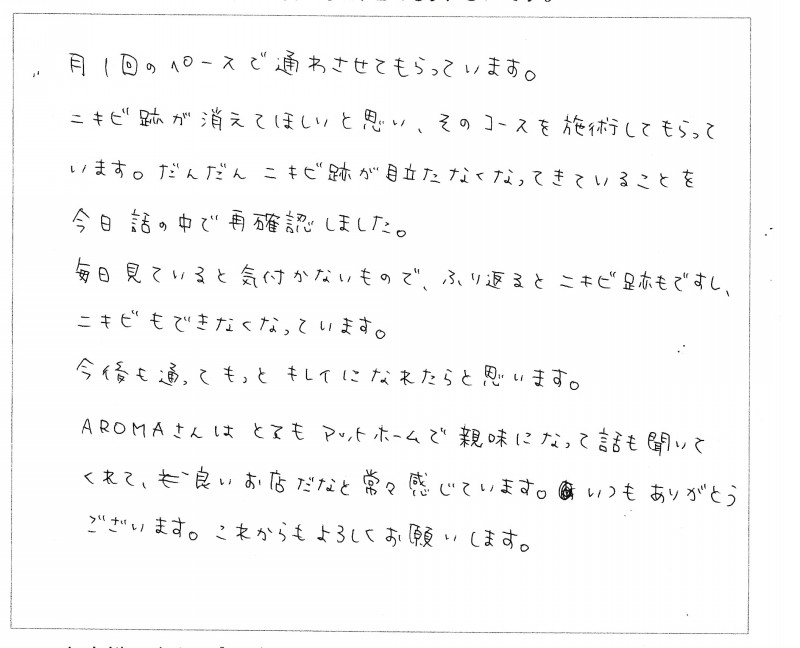 月1回のペースで通わさせてもらっています。
ニキビ跡が消えてほしいと思い、そのコースを施術してもらって
います。だんだん ニキビ跡が目立たなくなってきていることを
今日 話の中で再確認しました。
毎日見ていると気付かないもので、ふり返ると ニキビ跡もですし、
ニキビもできなくなっています。
今後も通ってもっと キレイになれたらと思います。
AROMAさんは とてもアットホームで親味になって話も聞いて
くれて、良いお店だなと常々感じています。いつもありがとう
ございます。これからもよろしくお願いします。